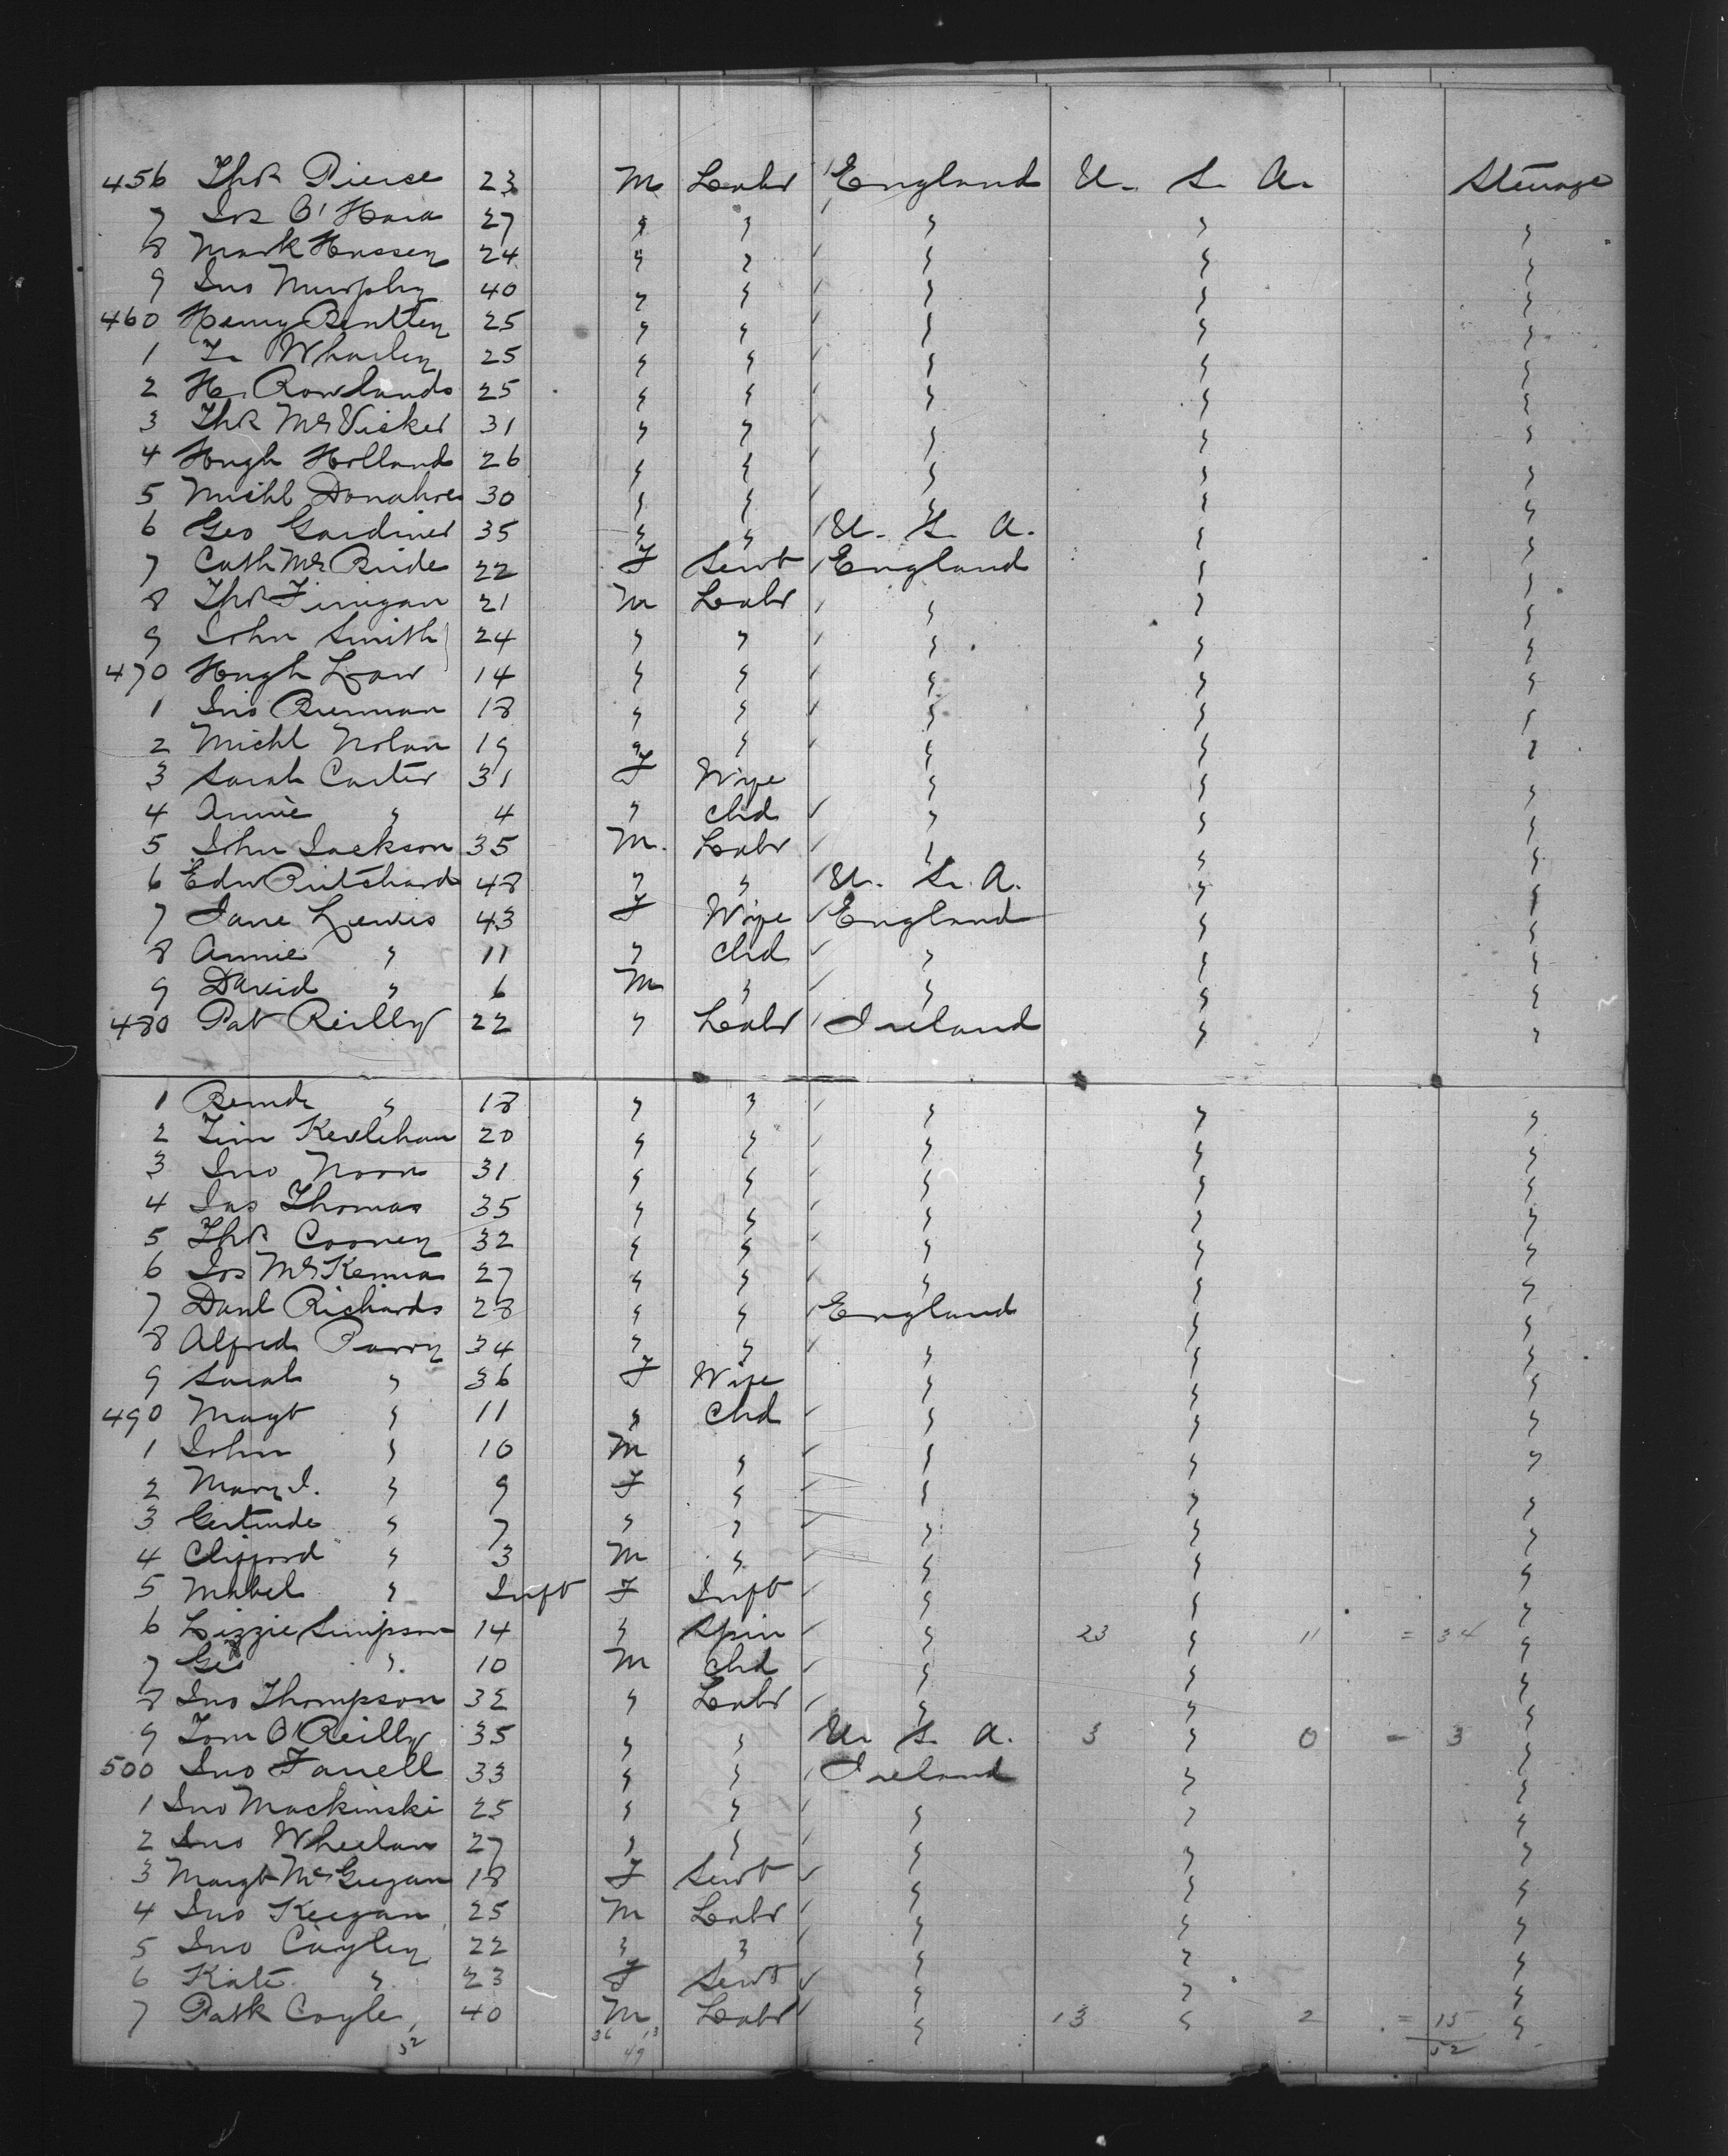 456 Thos Pierse 23 M Labr England U. S. A. Steerage
7 Jos O'Hara 27 " " " " "
8 Mark Hussey 24 " " " " "
9 Jno Murphy 40 " " " " "
460 Henry Bentley 25 " " " " "
1 Wharley 25 " " " " "
2 H. Rowlands 25 " " " " "
3 Thos McVicker 31 " " " " "
4 Hugh Holland 26 " " " " "
5 Michl Donahoe 30 " " " " "
6 Geo Gardiner 35 " " U. S. A. " "
7 Cath McBride 22 F Servt England " "
8 Thos Finigan 21 M Labr " " "
9 John Smith 24 " " " " "
470 Hugh Law 14 " " " " "
1 Jno Brennan 18 " " " " "
2 Michl Nolan 19 " " " " "
3 Sarah Carter 31 F Wife " " "
4 Annie " 4 " Chd " " "
5 John Jackson 35 M. Labr " " "
6 Edw Pritchard 48 " " U. S. A. " "
7 Jane Lewis 43 F Wife England " "
8 Annie " 11 " Chd " " "
9 David " 6 M " " " "
480 Pat Reilly 22 " Labr Ireland " "
1 Bernd " 18 " " " " "
2 Tim Kevlehan 20 " " " " "
3 Jno Noon 31 " " " " "
4 Jas Thomas 35 " " " " "
5 Thos Cooney 32 " " " " "
6 Jos McKenna 27 " " " " "
7 Danl Richards 28 " " England " "
8 Alfred Parry 34 " " " " "
9 Sarah " 36 F Wife " " "
490 Magt " 11 " Chd " " "
1 John " 10 M " " " "
2 Mary J. " 9 F " " " "
3 Gertrude " 7 " " " " "
4 Clifford " 3 M " " " "
5 Mabel " Inft F Inft " " "
6 Lizzie Simpson 14 " Spin " 23 " 11 = 34 "
7 Geo " 10 M Chd " " "
8 Jno Thompson 32 " Labr " " "
9 Tom O'Reilly 35 " " U. S. A. 3 " 0 = 3 "
500 Jno Farrell 33 " " Ireland " "
1 Jno Mackinski 25 " " " " "
2 Jno Wheelan 27 " " " " "
3 Margt McGuigan 18 F Servt " " "
4 Jno Keegan 25 M Labr " " "
5 Jno Cayley 22 " " " " "
6 Kate " 23 F Servt " " "
7 Patk Coyle 40 M Labr " 13 " 2 = 15 "
52 36 13 52
49